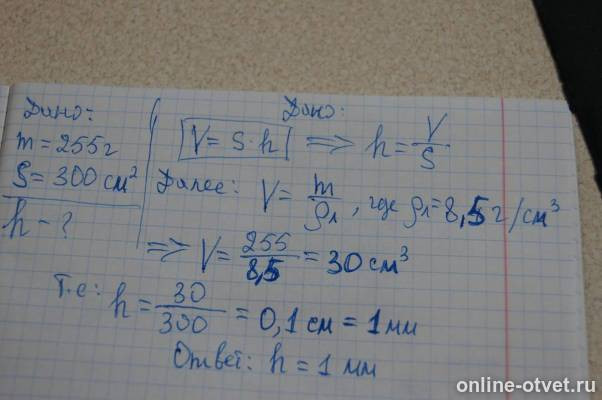 Дано:
m = 255 г
S = 300 см²
h - ?
Дано:
V = S·h ⇒ h = V/S
Далее: V = m/ρл, где ρл = 8,5 г/см³
⇒ V = 255/8,5 = 30 см³
Т.е: h = 30/300 = 0,1 см = 1 мм
Ответ: h = 1 мм
online-otvet.ru